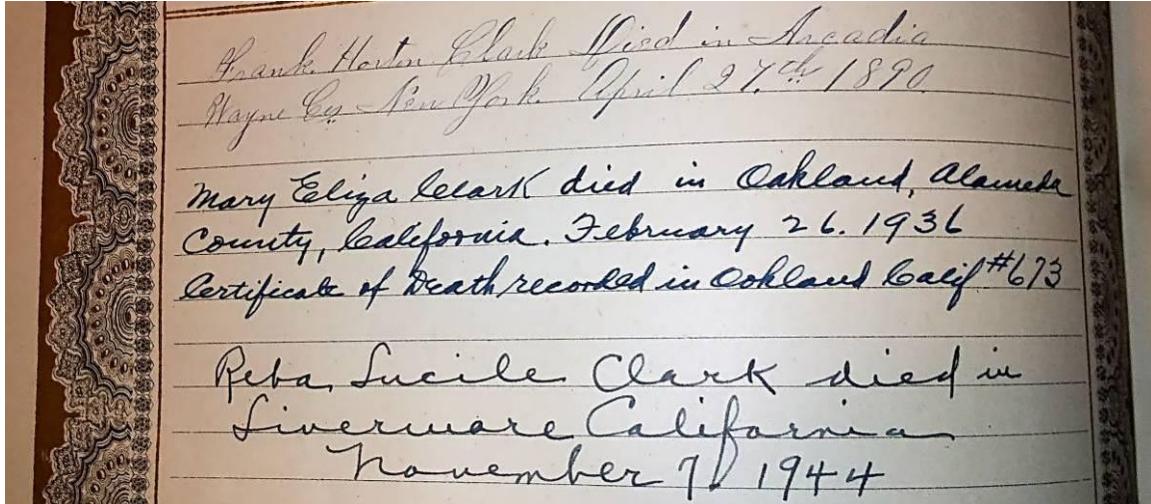 Frank Horton Clark Died in Arcadia
Wayne Co New York. April 27th 1890.
Mary Eliza Clark died in Oakland, Alameda
County, California. February 26. 1936
Certificate of Death recorded in Oakland Calif #673
Reba Lucile Clark died in
Livermore California
November 7, 1944